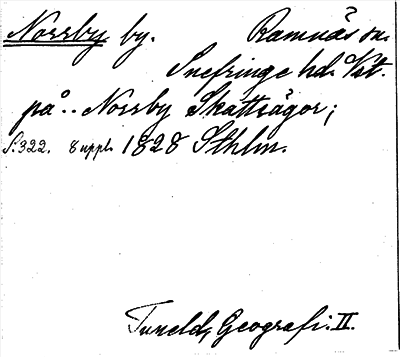 Norrby by. Ramnäs sn.
Snefringe hd. Vst.
på.. Norrby Skattsågor;
S. 322. 8 uppl. 1828 Sthlm.
Tuneld, Geografi. II.